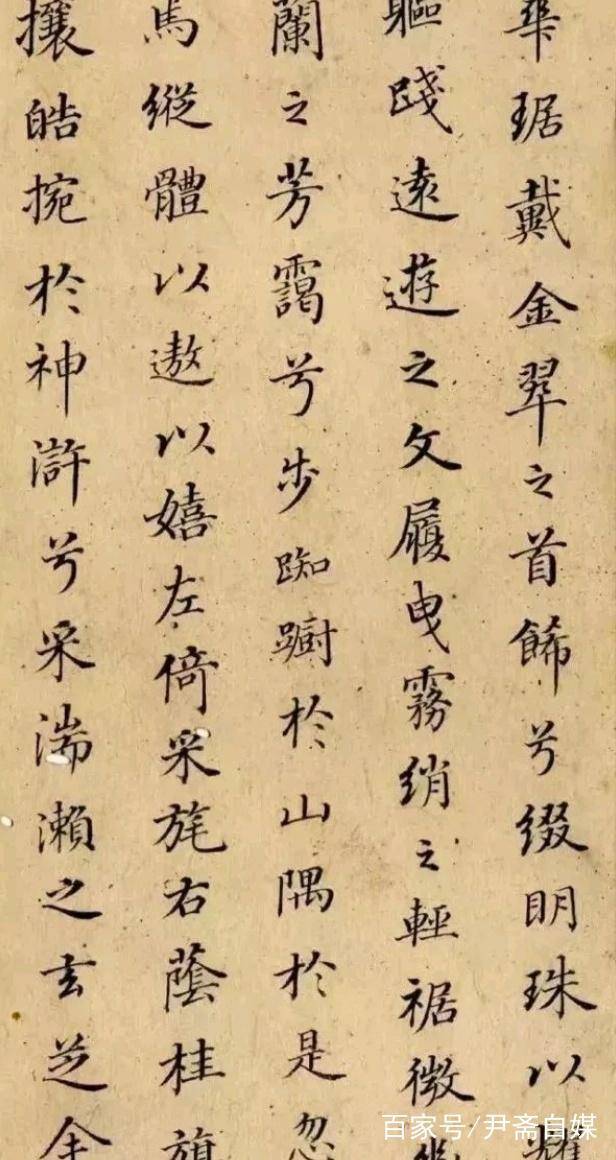 華琚戴金翠之首餙兮綴明珠以耀
軀踐遠遊之文履曳霧綃之輕裾微
蘭之芳靄兮步踟躕於山隅於是忽
馬縱體以遨以嬉左倚采旄右蔭桂旗
攘皓捥於神滸兮采湍瀨之玄芝余
百家号/尹斋自媒